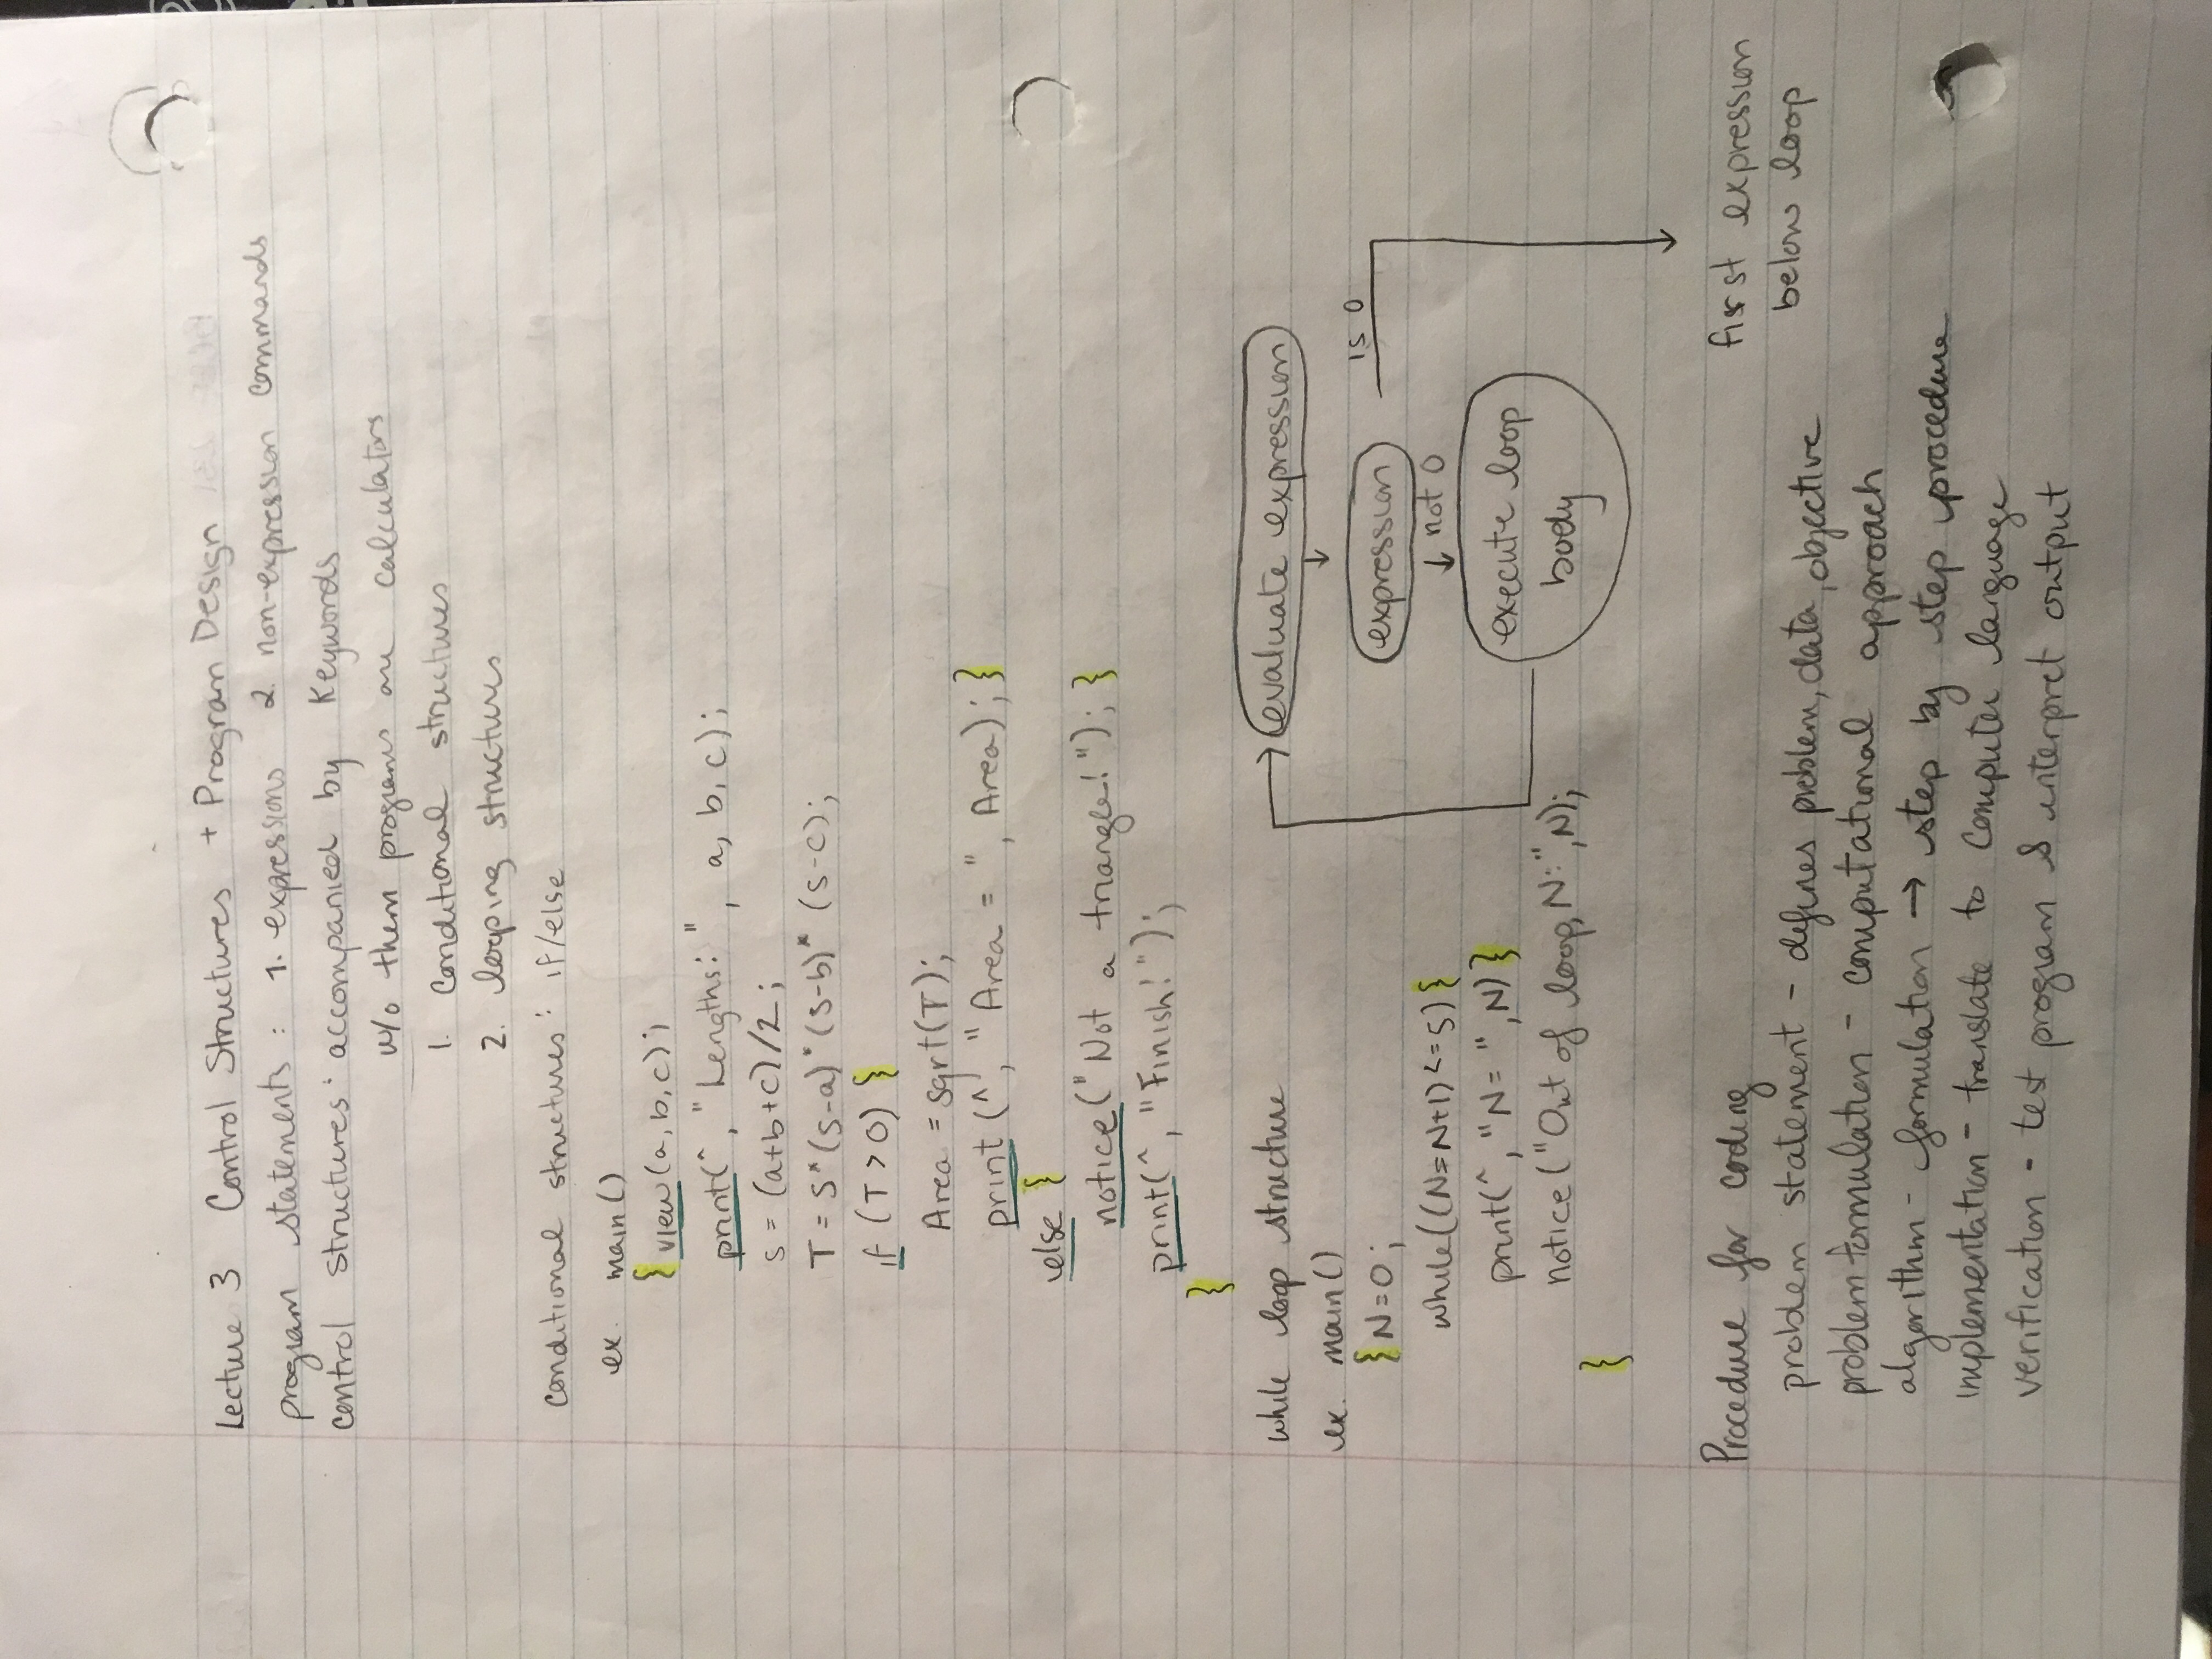 Lecture 3 Control Structures + Program Design
program statements: 1. expressions 2. non-expression commands
control structures: accompanied by keywords
w/o them programs are calculators
1. conditional structures
2. looping structures
conditional structures: if/else
ex. main()
{ view(a,b,c);
print(^, "Lengths:", a, b, c);
s = (a+b+c)/2;
T = s*(s-a)*(s-b)*(s-c);
if (T > 0) {
Area = sqrt(T);
print(^, "Area = ", Area); }
else {
notice("Not a triangle!"); }
print(^, "Finish!");
}
while loop structure
ex. main()
{ N=0;
while((N=N+1)<=5){
print(^, "N= ", N) }
notice("Out of loop, N:", N);
}
evaluate expression
expression
is 0
not 0
execute loop
body
first expression
below loop
Procedure for coding
problem statement - defines problem, data, objective
problem formulation - computational approach
algorithm - formulation → step by step procedure
implementation - translate to computer language
verification - test program & interpret output